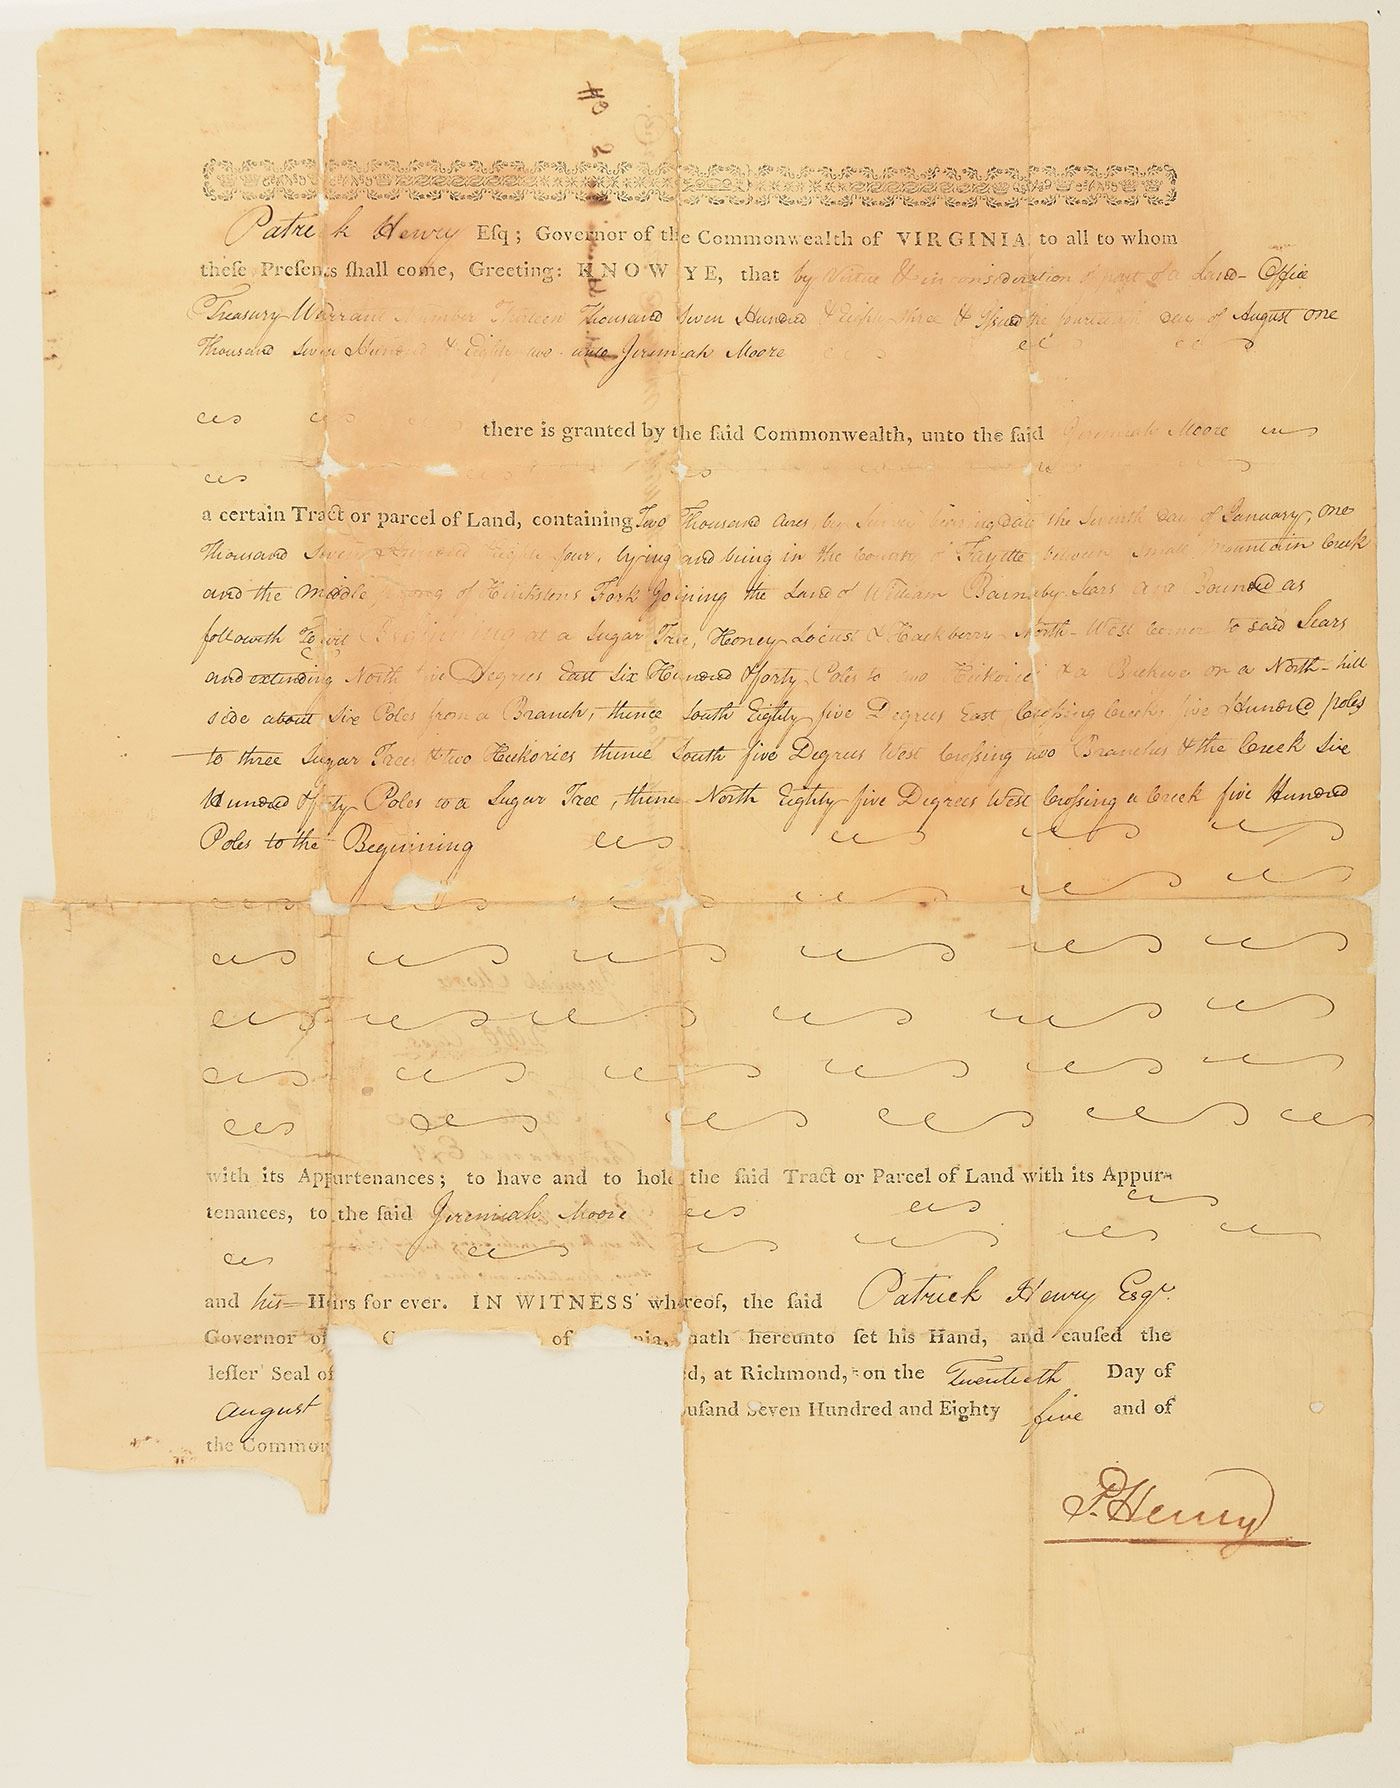 Patrick Henry Esq; Governor of the Commonwealth of VIRGINIA to all to whom
theſe Preſents ſhall come, Greeting: KNOW YE, that by Virtue & in consideration of part of a Land-Office
Treasury Warrant Number Thirteen Thousand Seven Hundred & Eighty three & Issued the fourteenth day of August one
Thousand Seven Hundred & Eighty two unto Jeremiah Moore
there is granted by the ſaid Commonwealth, unto the ſaid Jeremiah Moore
a certain Tract or parcel of Land, containing Two Thousand Acres, by Survey bearing Date the Seventh day of January, one
Thousand Seven Hundred Eighty four, lying and being in the County of Fayette between Small Mountain Creek
and the middle of Hinkstens Fork Joining the Land of William Barnaby Sears and Bounded as
followeth To wit Beginning at a Sugar Tree, Honey Locust & Hackberry North-West Corner to said Sears
and extending North five Degrees East Six Hundred & forty Poles to two Hickories & a Buckeye on a North-hill
side about six Poles from a Branch, thence South Eighty five Degrees East Crossing Creek five Hundred poles
to three Sugar Trees & two Hickories thence South five Degrees West Crossing two Branches & the Creek Six
Hundred & forty Poles to a Sugar Tree, thence North Eighty five Degrees West Crossing a Creek five Hundred
Poles to the Beginning
with its Appurtenances; to have and to hold the ſaid Tract or Parcel of Land with its Appur-
tenances, to the ſaid Jeremiah Moore
and his Heirs for ever. IN WITNESS whereof, the ſaid Patrick Henry Esqr.
Governor of C of nia, hath hereunto ſet his Hand, and cauſed the
leſſer Seal of d, at Richmond, on the Twentieth Day of
August ouſand Seven Hundred and Eighty five and of
the Common
P. Henry